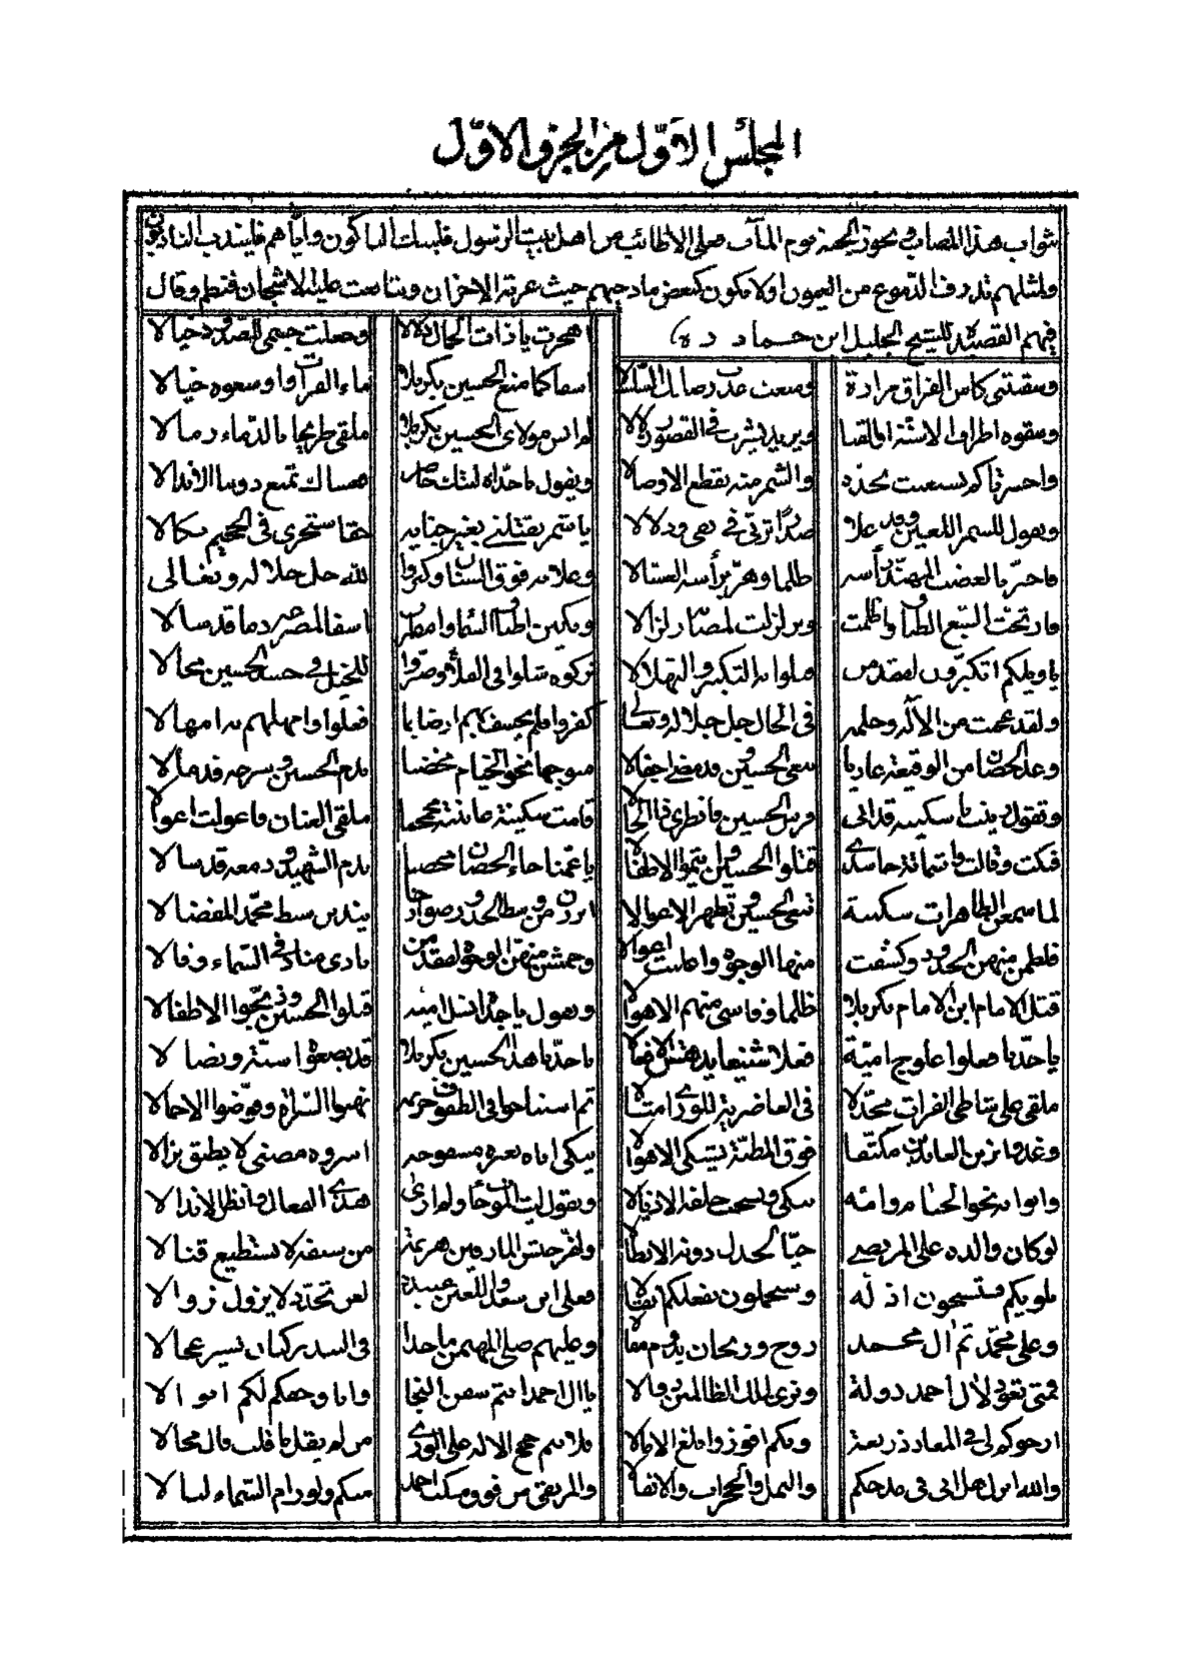 المجلس الأوّل من الجزء الاوّل
ثواب هذا المصاب ويحوز الجنة يوم المآب فعلى الاطائب من اهل بيت الرسول فليبك الباكون واياهم فليندب النادبون
ولمثلهم تذرف الدموع من العيون اولا تكون كبعض مادحيهم حيث عرته الاحزان وتتابعت عليه الاشجان فنظم وقال
فيهم القصيدة للشيخ الجليل ابن حماد ره
اهجرت يا ذات الجمال دلالا وجعلت جسمي للصدود خيالا
وسقيتني كاس الفراق مرارة ومنعت عذب رضابك السلسالا
اسفا كما منع الحسين بكربلا ماء الفرات واوسعوه خبالا
وسقوه اطراف الاسنة والقنا ويزيد يشرب في القصور زلالا
لم انس مولاي الحسين بكربلا ملقى طريحا بالدماء رمالا
واحسرتا كم يستغيث بجده والشمر منه يقطع الاوصالا
ويقول يا جداه ليتك حاضر فعساك تمنع دوننا الانذالا
ويقول للشمر اللعين وقد علا صدرا تربى في تقى ودلالا
يا شمر تقتلني بغير جناية حقا ستجزى في الجحيم نكالا
ظلما وهز برأسه العسالا
وعلا به فوق السنان وكبروا لله جل جلاله وتعالى
وتزلزلت لمصابه زلزالا
اسفا لمصرعه دما قد سالا
يا ويلكم اتكبرون لفقد من قتلوا به التكبير والتهلالا
تركوه شلوا في الفلاة وصيروا للخيل في جسد الحسين مجالا
ولقد عجبت من الاله وحلمه في الحال جل جلاله وتعالى
كفروا فلم يخسف بهم ارضا بما فعلوا وامهلهم به امهالا
وغدا الحصان من الوقيعة عاريا ينعى الحسين وقد مضى اجفالا
متوجها نحو الخيام مخضبا بدم الحسين وسرجه قد مالا
وتقول زينب يا سكينة قد اتى فرس الحسين فانظري ذا الحالا
قامت سكينة عاينته محمحما ملقى العنان فاعولت اعوالا
فبكت وقالت وا شماتة حاسدي قتلوا الحسين وايتموا الاطفالا
يا عمتا جاء الحصان مخضبا بدم الشهيد ودمعه قد سالا
لما سمعن الطاهرات سكينة تنعى الحسين وتظهر الاعوالا
ابرزن من وسط الخدور صوارخا يندبن سبط محمد المفضالا
فلطمن منهن الخدود وكشفت منها الوجوه واعلنت اعوالا
وخمشن منهن الوجوه لفقد من نادى مناد في السماء وقالا
قتل الامام ابن الامام بكربلا ظلما وقاسى منهم الاهوالا
وتقول يا جداه نسل امية قتلوا الحسين وذبحوا الاطفالا
يا جدنا فعلوا علوج امية فعلا شنيعا يدهش الافعالا
يا جدنا هذا الحسين بكربلا قد بضعوه اسنة ونصالا
ملقى على شاطي الفرات مجدلا في الغاضرية للورى امثالا
ثم استباحوا في الطفوف حريمه نهبوا السرادق وقوضوا الاحمالا
وغدوا بزين العابدين مكتفا فوق المطية يشتكي الاهوالا
يبكي اباه بعبرة مسفوحة اسروه مضنى لا يطيق نزالا
وامه تبكي وتسحب خلفه الاذيالا
وتقول ليت الموت جاء ولم ارى هذي الفعال وانظر الانذالا
لو كان والده علي المرتضى حيا لجدل دونه الابطالا
ولفر جيش المارقين هزيمة من سيفه لا يستطيع قتالا
يا ويلكم فستسحبون اذلة وستحملون بفعلكم اثقالا
فعلى ابن سعد واللعين عبيده لعن تجدد لا يزول زوالا
وعلى محمد ثم آل محمد روح وريحان يدوم مقالا
وعليهم صلى المهيمن ما حدا في البيد ركبان تسير عجالا
فمتى تعود لال احمد دولة ونرى لملك الظالمين زوالا
يا ال احمد انتم سفن النجا وانا وحقكم لكم اتوالا
ارجوكم لي في المعاد ذريعة وبكم افوز وابلغ الامالا
فلانتم حجج الاله على الورى من لم يقل ما قلت قال محالا
والله انزل هل اتى في مدحكم والنمل والحجرات والانفالا
والمرتقى من فوق منكب احمد منكم ولو رام السماء لنالا